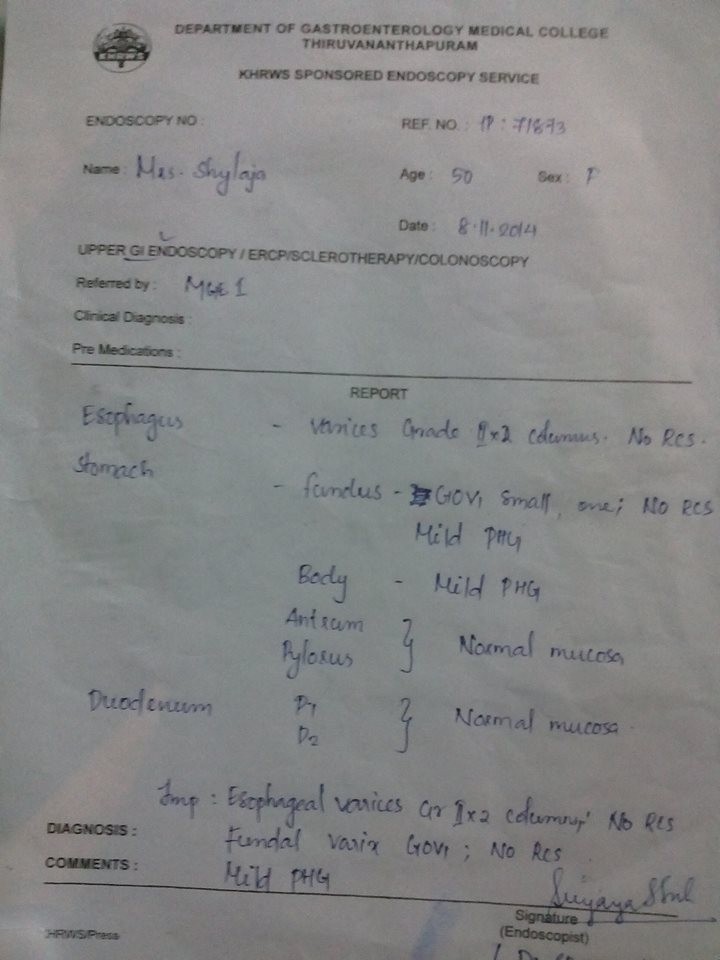 DEPARTMENT OF GASTROENTEROLOGY MEDICAL COLLEGE
THIRUVANANTHAPURAM
KHRWS
KHRWS SPONSORED ENDOSCOPY SERVICE
ENDOSCOPY NO :
REF. NO. : IP : 71873
Name : Mrs. Shylaja
Age : 50 Sex : F
Date : 8.11.2014
UPPER GI ENDOSCOPY / ERCP/SCLEROTHERAPY/COLONOSCOPY
Referred by : MGE I
Clinical Diagnosis :
Pre Medications :
REPORT
Esophagus - Varices Grade II x 2 columns. No RCS.
Stomach
- fundus - GOV1 small, one; No RCS
Mild PHG
Body - Mild PHG
Antrum
Pylorus } Normal mucosa
Duodenum D1
D2 } Normal mucosa.
Imp : Esophageal varices Gr II x 2 columns; No RCS
DIAGNOSIS : Fundal varix GOV1 ; No RCS.
COMMENTS : Mild PHG
Signature
(Endoscopist)
KHRWS/Press